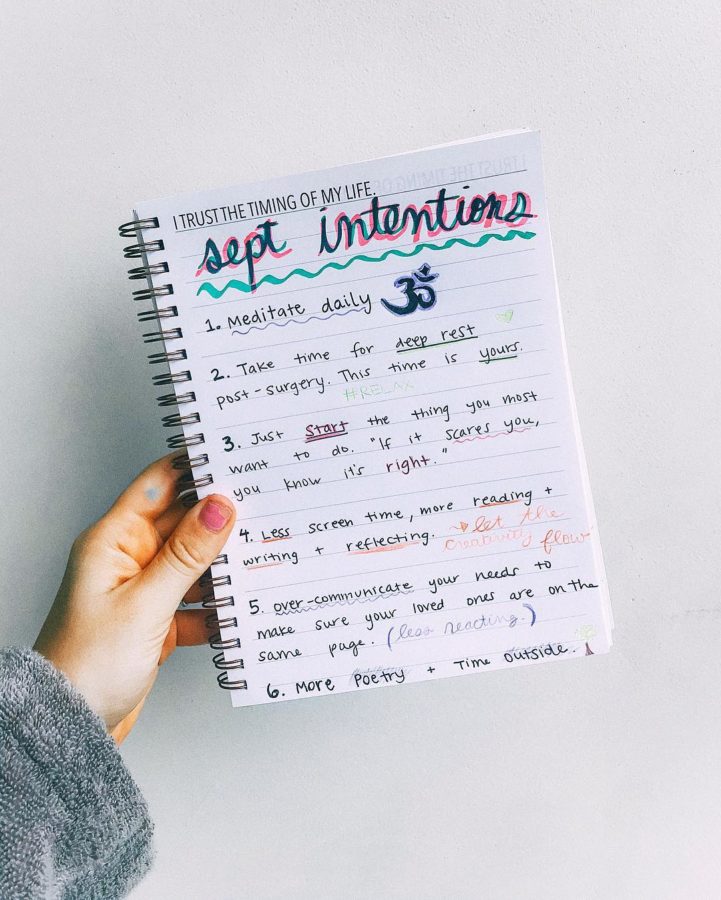 I TRUST THE TIMING OF MY LIFE.
sept intentions
1. Meditate daily ॐ
2. Take time for deep rest
post-surgery. This time is yours.
#RELAX
3. Just start the thing you most
want to do. "If it scares you,
you know it's right."
4. Less screen time, more reading +
writing + reflecting. let the
creativity flow
5. over-communicate your needs to
make sure your loved ones are on the
same page. (less reacting.)
6. More poetry + time outside.